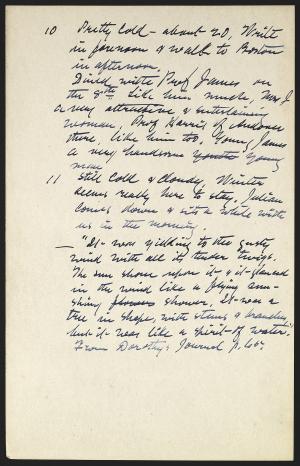 10 Pretty cold - about 20, Write
in forenoon & walk to Boston
in afternoon.
Dined with Prof James on
the 8th like him much, Mrs J
a very attractive & entertaining
woman Prof Harris of Andover
there, like him too, Young James
a very handsome youth young
man
11 Still cold & cloudy, Winter
seems really here to stay, Julian
comes down & sits a while with
us in the morning.
— "It was yielding to the gusty
wind with all it tender twigs.
The sun shone upon it & it glanced
in the wind like a flying sun-
shiny shower, It was a
tree in shape, with stems & branches
but it was like a spirit of water."
From Dorothy's Journal p. 65.